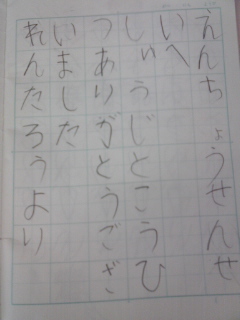 えんちょうせんせ
いへ
しゅうじとこうひ
つありがとうござ
いました
れんたろうより